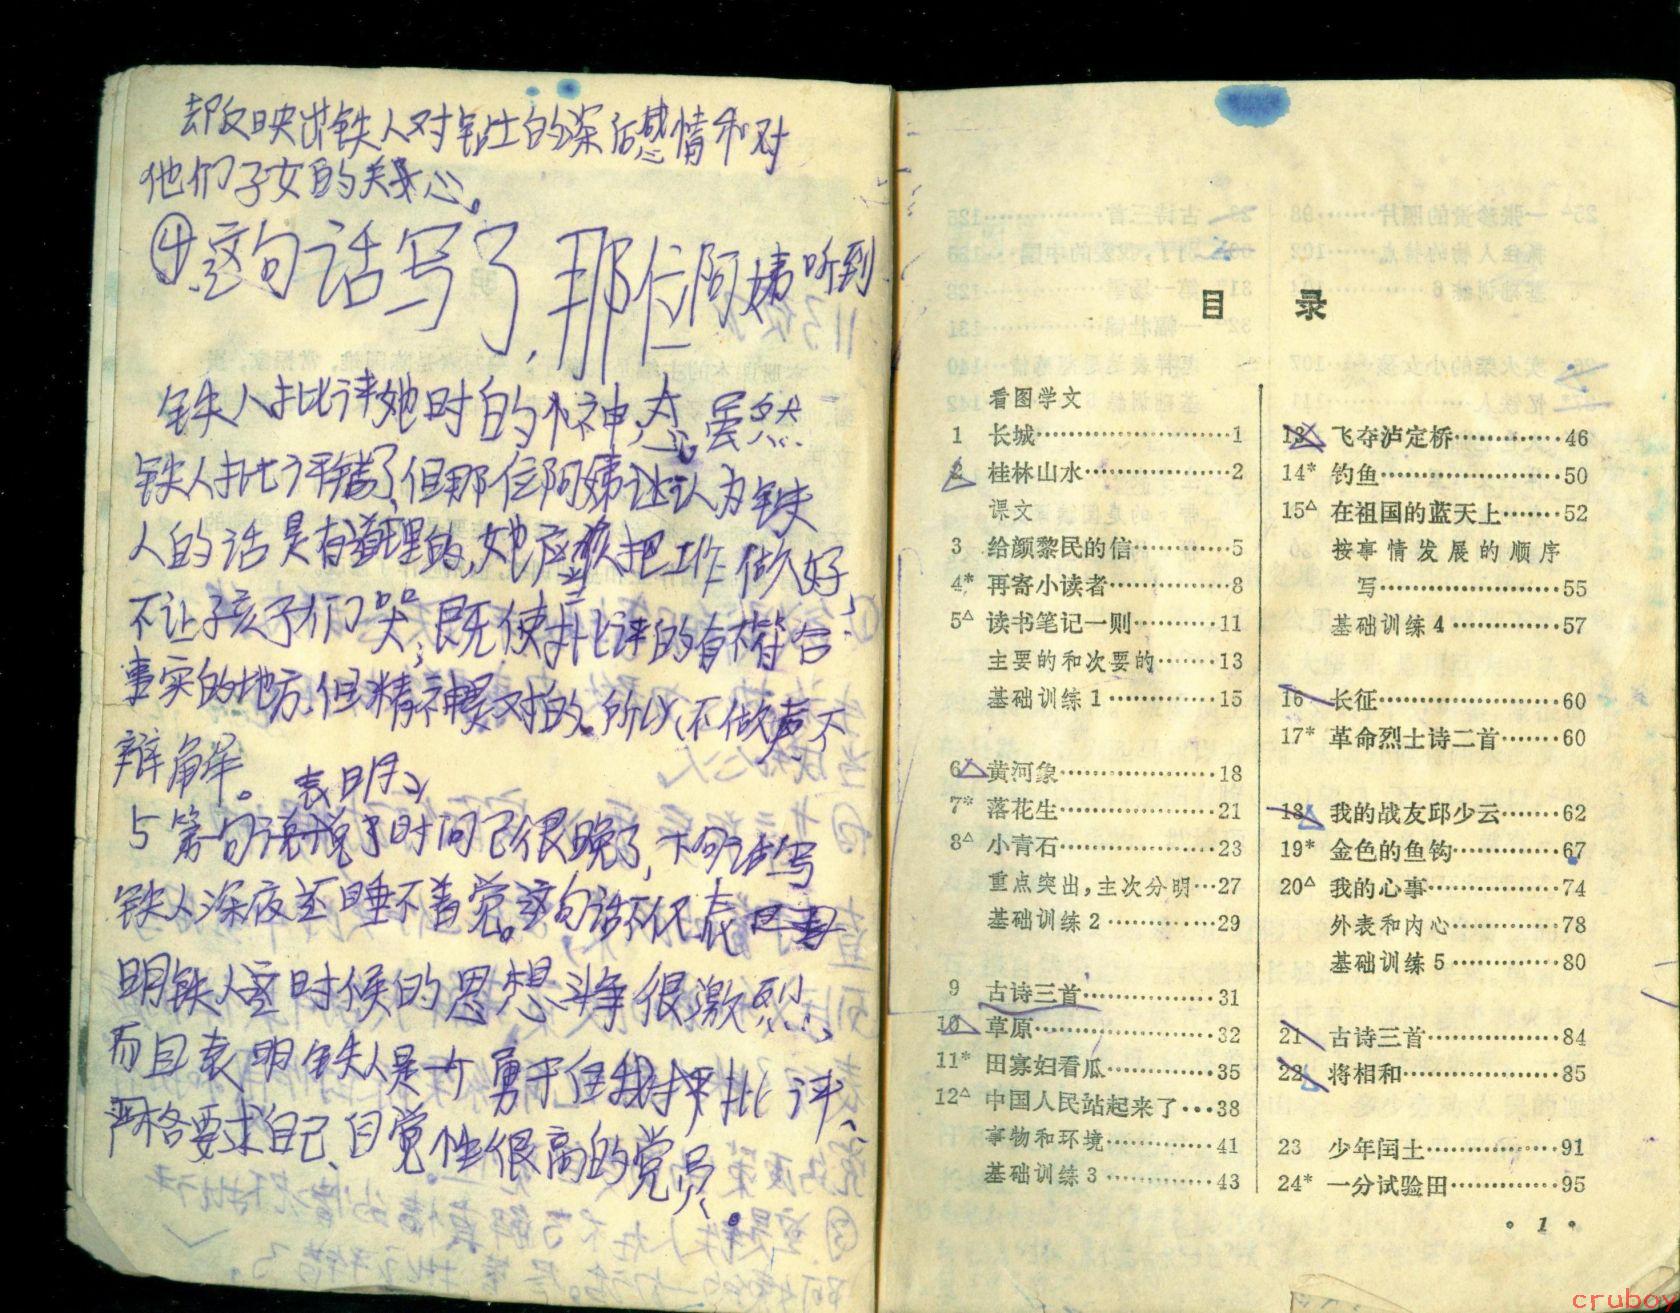 却反映出铁人对钻工的深厚感情和对
他们子女的关心。
④这句话写了,那位阿姨听到
铁人批评她时的神态。虽然
铁人批评错了,但那位阿姨认为铁
人的话是有道理的,她应该把工作做好,
不让孩子们哭,既使批评的有不符合
事实的地方,但精神是对的。所以不做声不
辩解。
表明
5 第一句说了时间已很晚了,下句话写
铁人深夜还睡不着觉。这句话不仅表
明铁人这时候的思想斗争很激烈,
而且表明铁人是一个勇于自我批评、
严格要求自己、自觉性很高的党员。
目 录
看图学文
1 长城························1
2 桂林山水··················2
课文
3 给颜黎民的信············5
4* 再寄小读者···············8
5△ 读书笔记一则··········11
主要的和次要的·······13
基础训练1············15
6△ 黄河象···················18
7* 落花生···················21
8△ 小青石···················23
重点突出,主次分明···27
基础训练2············29
9 古诗三首···············31
10 草原······················32
11* 田寡妇看瓜············35
12△ 中国人民站起来了···38
事物和环境············41
基础训练3············43
13 飞夺泸定桥·············46
14* 钓鱼······················50
15△ 在祖国的蓝天上·······52
按事情发展的顺序
写······················55
基础训练4·············57
16 长征······················60
17* 革命烈士诗二首·······60
18 我的战友邱少云·······62
19* 金色的鱼钩·············67
20△ 我的心事················74
外表和内心·············78
基础训练5·············80
21 古诗三首················84
22 将相和···················85
23 少年闰土················91
24* 一分试验田·············95
· 1 ·
cruboy